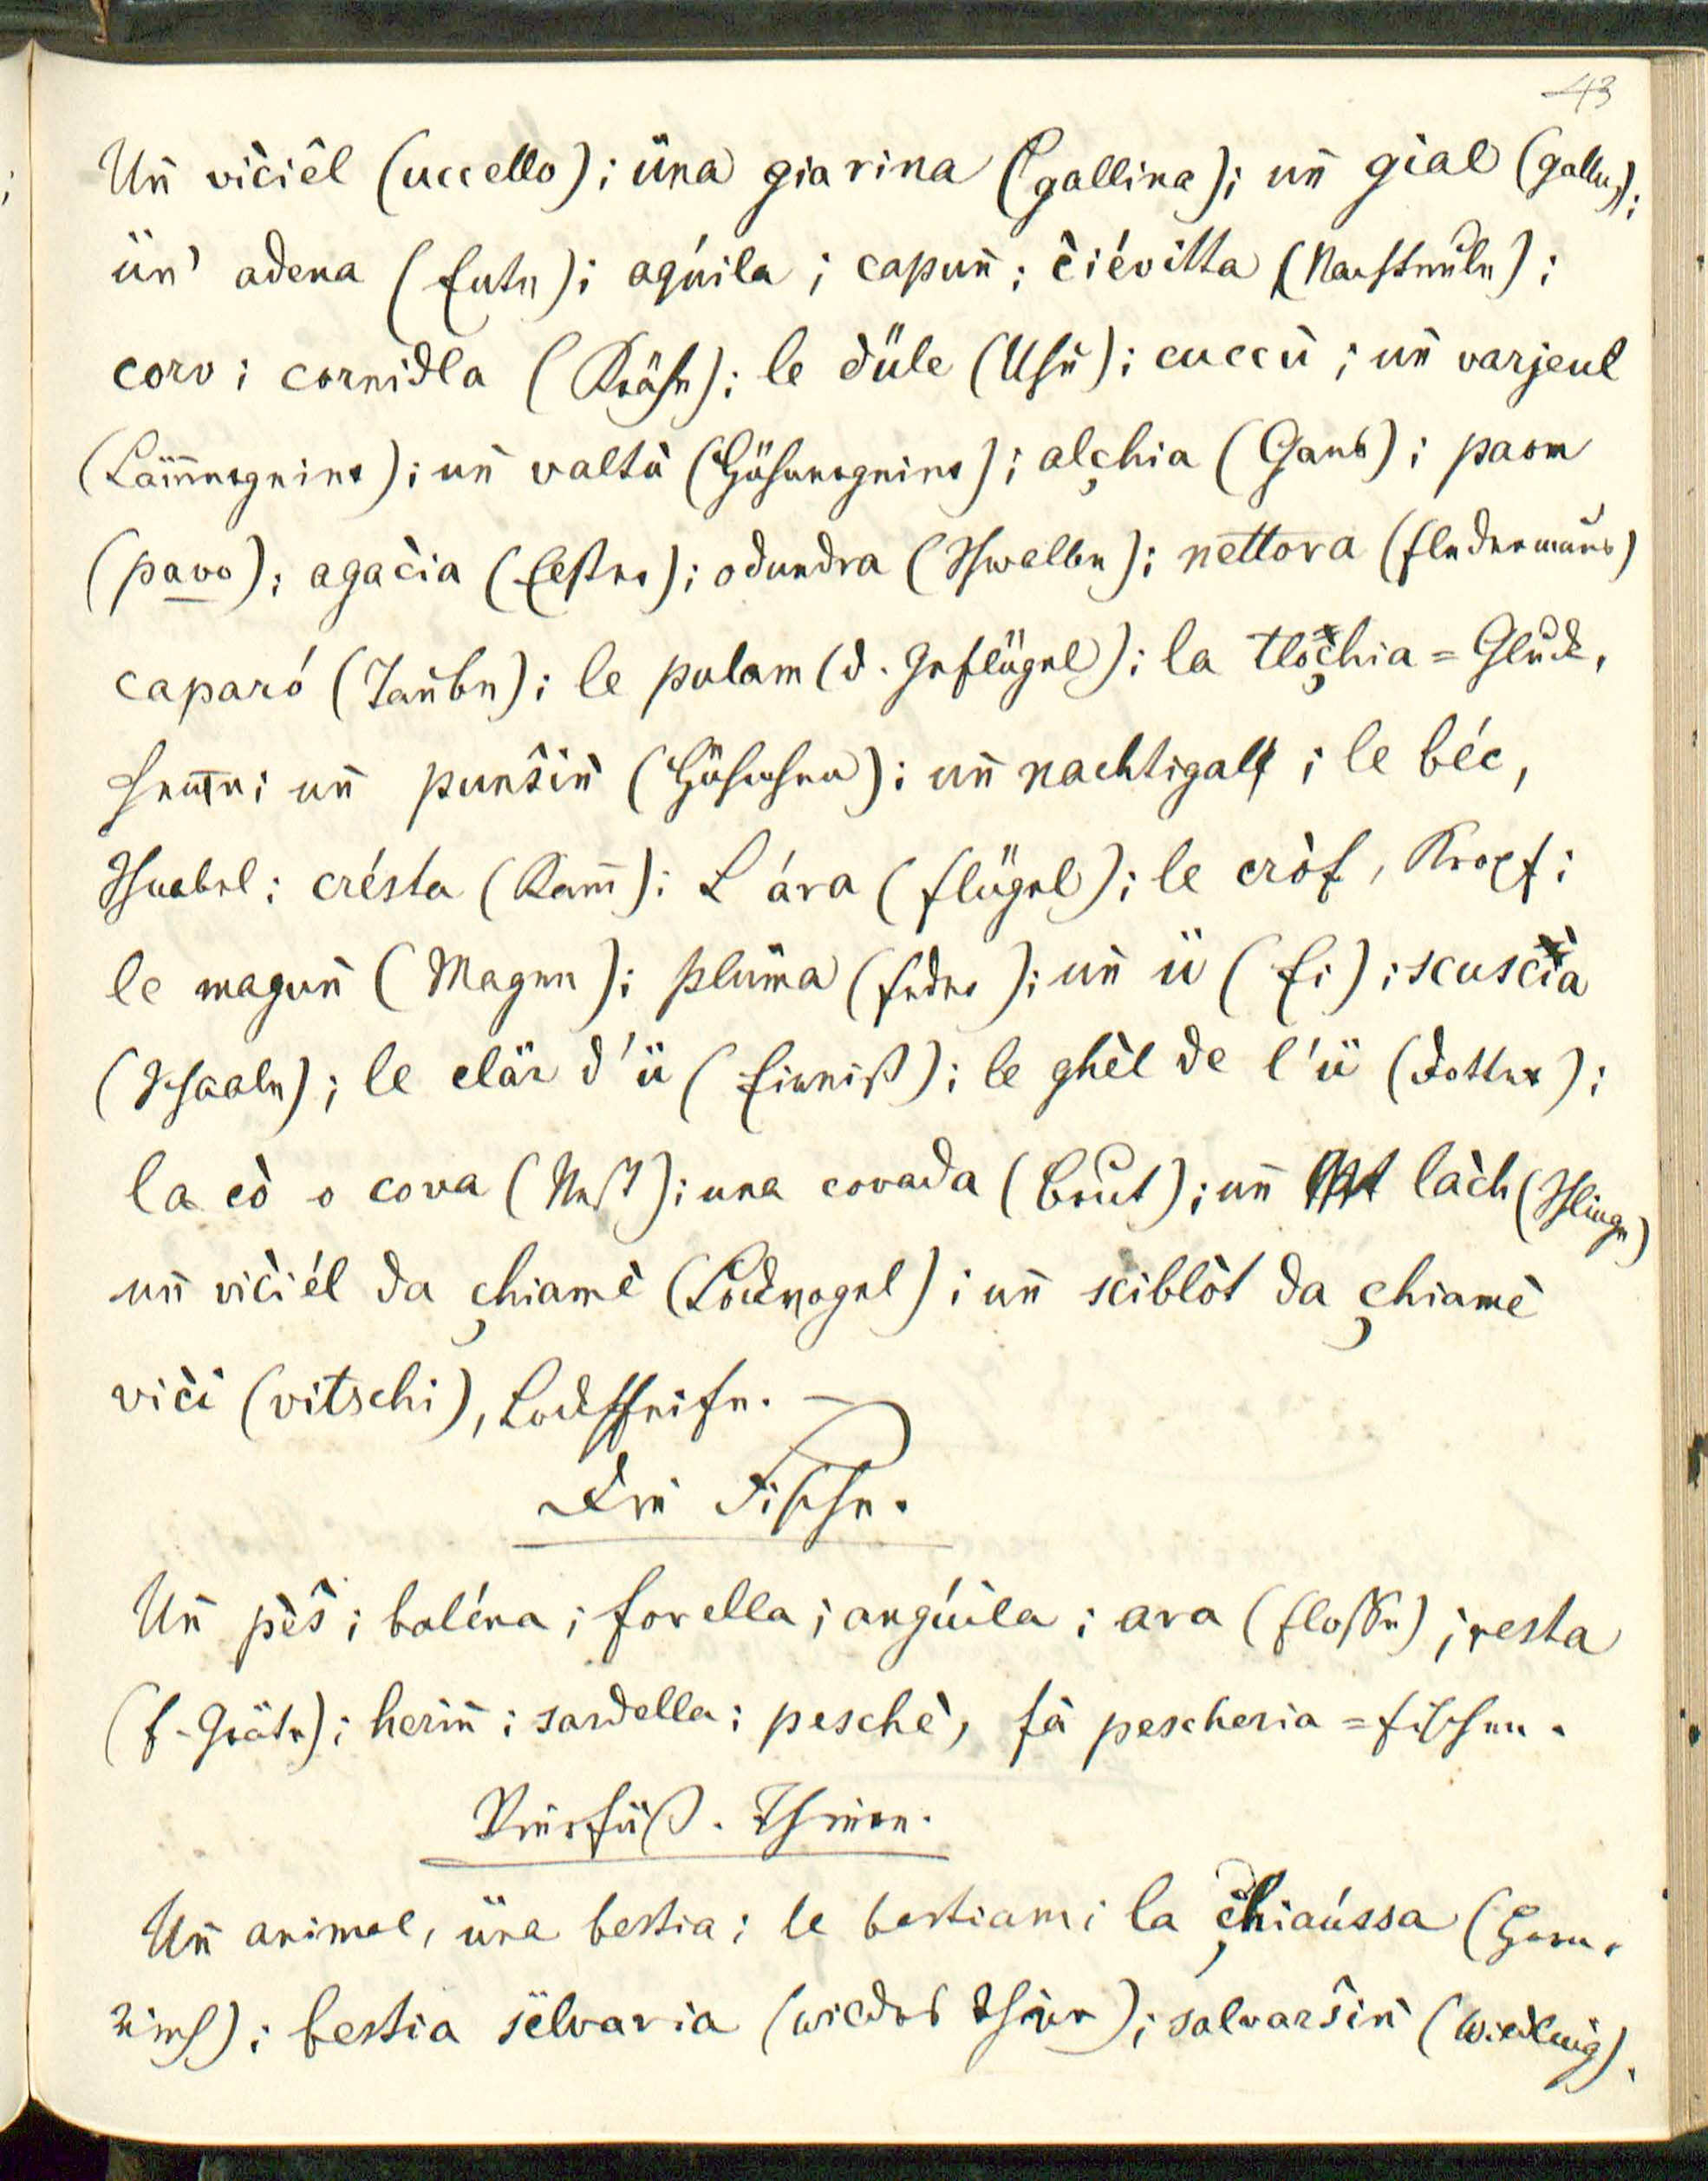 43
Uñ vičiêl (uccello); üna giarina (gallina); uñ gial (gallus);
ün' adena (Ente); agúila; capuñ; čiévitta (Nachteule);
corv; cornidla (Krähe); le düle (Uhu); cuccù; uñ varjeul
(Lämmergeier); uñ valtù (Hühnergeier); alçhia (Gans); paom
(pavo); agačia (Elster); odundra (Schwalbe); nettora (Fledermaus)
caparó (Taube); le polam (d. Geflügel); la tločhia = Gluck,
henne; uñ punsiñ (Hühchen); uñ nachtigall; le béc,
Schnabel; crésta (Kam̄); L'ára (Flügel); le cròf, Kropf;
le maguñ (Magen); plüma (Feder); uñ ü (Ei); scuscià
(Schaale); le clär d'ü (Eiweiß); le ghèl de l'ü (Dotter);
la cò o cova (Nest); una covada (Brut); uñ làch (Schlinge)
uñ vičiél da çhiamè (Lockvogel); uñ sciblòt da çhiamè
viči (vitschi), Lockpfeife. —
Die Fische.
Uñ pèš; baléna; forella; angúila; ara (Flosse); resta
(F-Gräte); heriñ; sardella; peschè, fà pescheria = fischen.
Vierfüß. Thiere.
Uñ animal, üna bestia; le bestiam; la çhiaússa (Gewürm,
bestia sëlvaria (wildes Thier); salvaršiñ (Wildling).